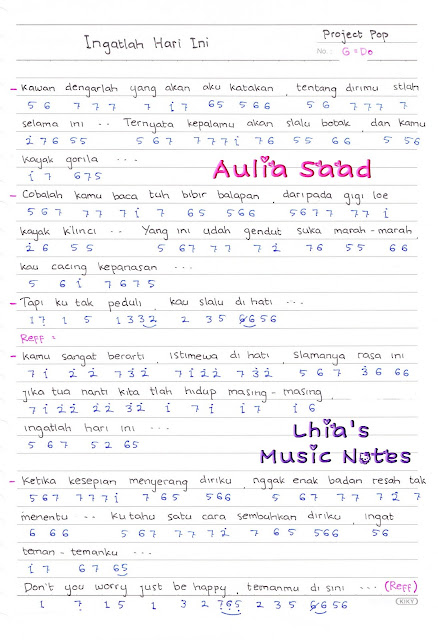 Ingatlah Hari Ini
Project Pop
No.: G = Do
- Kawan dengarlah yang akan aku katakan, tentang dirimu stlah
5 6 7 7 7 7 i 7 65 566 5 6 777 7
selama ini -- Ternyata kepalamu akan slalu botak, dan kamu
i 7 6 55 5 6 7 7 7 7 i 76 55 66 5 56
kayak gorila ---
i 7 675
Aulia Saad
- Cobalah kamu baca tuh bibir balapan, daripada gigi loe
5 6 7 7 7 i 7 65 566 5677 77 i
kayak k'linci -- Yang ini udah gendut suka marah-marah,
i6 55 5 67 77 7i 76 55 66
kau cacing kepanasan ---
5 6i 7675
- Tapi ku tak peduli, kau slalu di hati ---
i7 i 5 1332 2 35 6656
Reff :
- Kamu sangat berarti, istimewa di hati, slamanya rasa ini
7i 22 732 7i22 732 567 36 66
jika tua nanti kita tlah hidup masing-masing,
7i 22 22 32 i 7i i7 i6
ingatlah hari ini ---
5 6 7 52 65
Lhia's
Music Notes
- Ketika kesepian menyerang diriku, nggak enak badan resah tak
567 777i 765 566 5 67 77 7 i
menentu -- ku tahu satu cara sembuhkan diriku, ingat
6 66 5 67 77 2 765 566 56
teman-temanku ---
i7 67 65
Don't you worry just be happy, temanmu di sini --- (Reff)
1 7 15 1 3 2 765 2 3 5 6656
KIKY